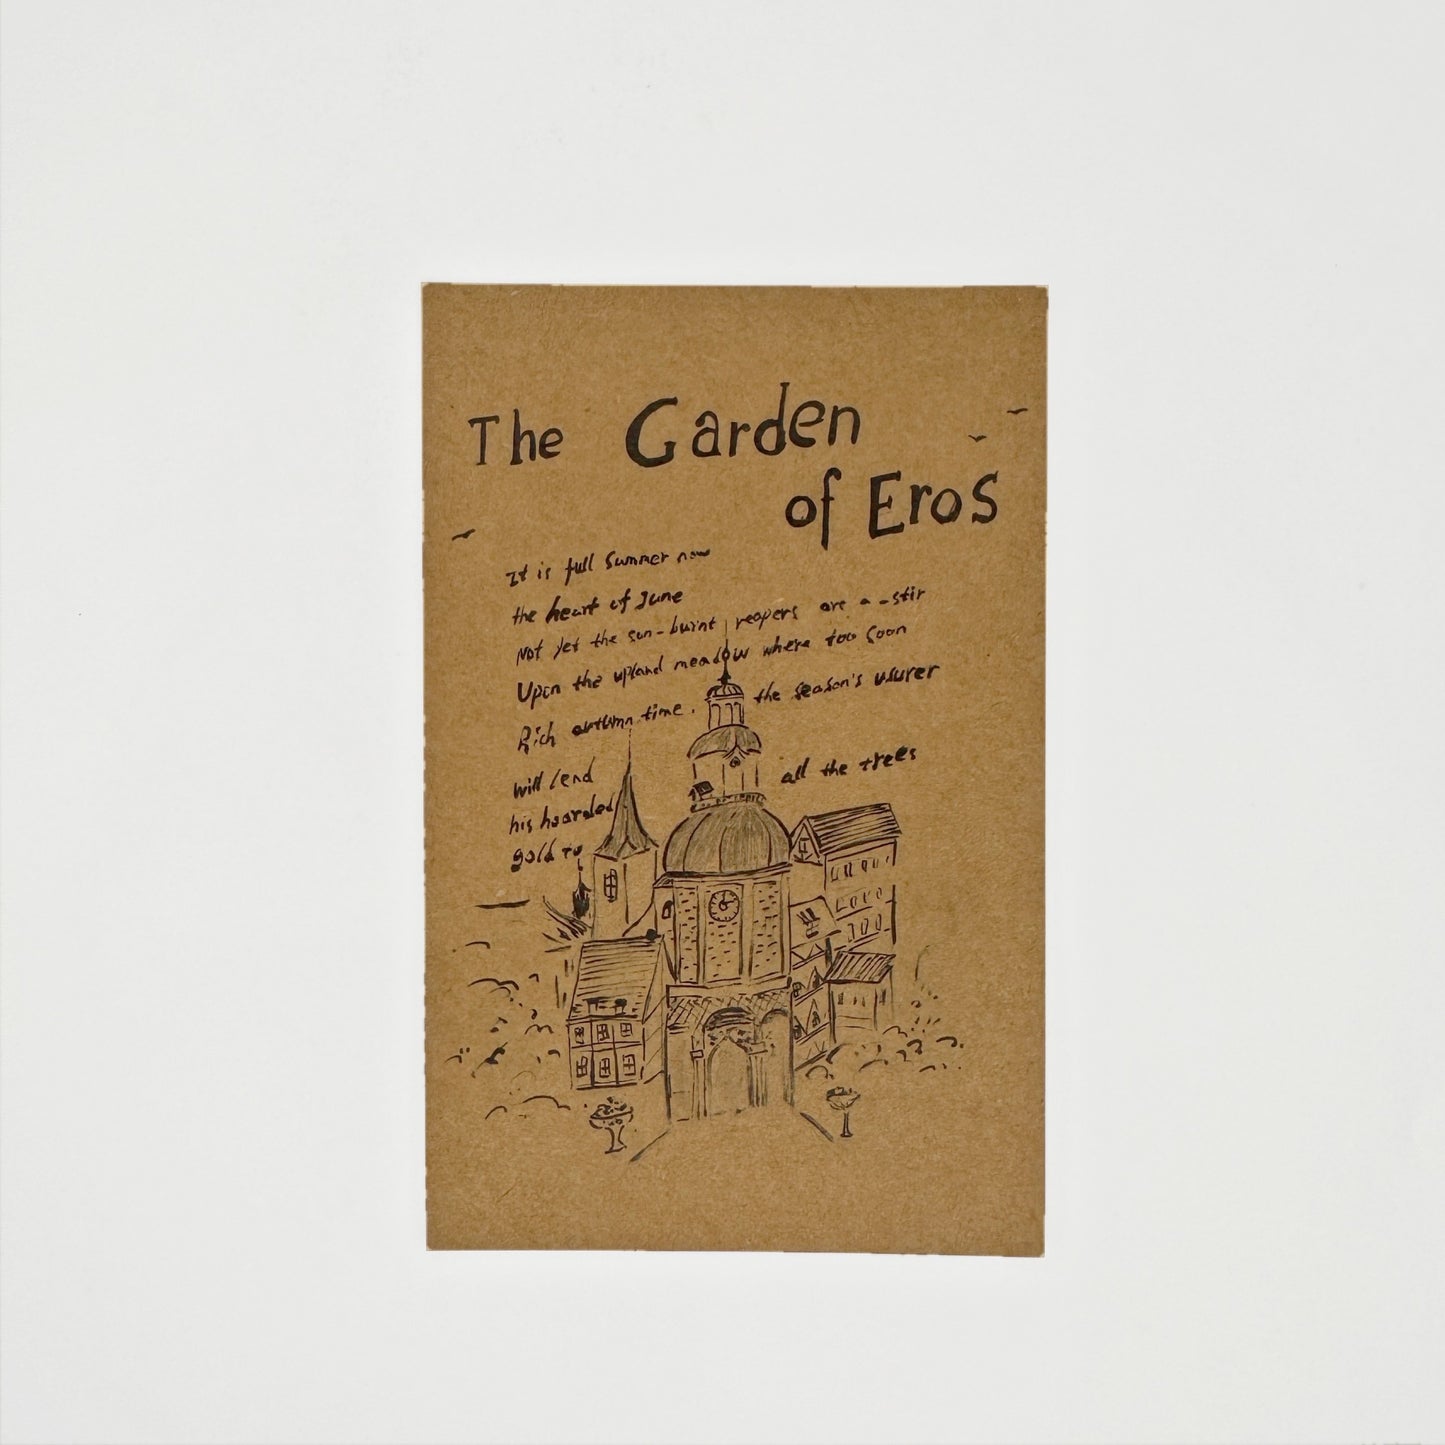 The Garden
of Eros
It is full Summer now
the heart of June
Not yet the sun-burnt reapers are a-stir
Upon the upland meadow where too soon
Rich autumn time. the season's usurer
will lend all the trees
his hoarded
gold to